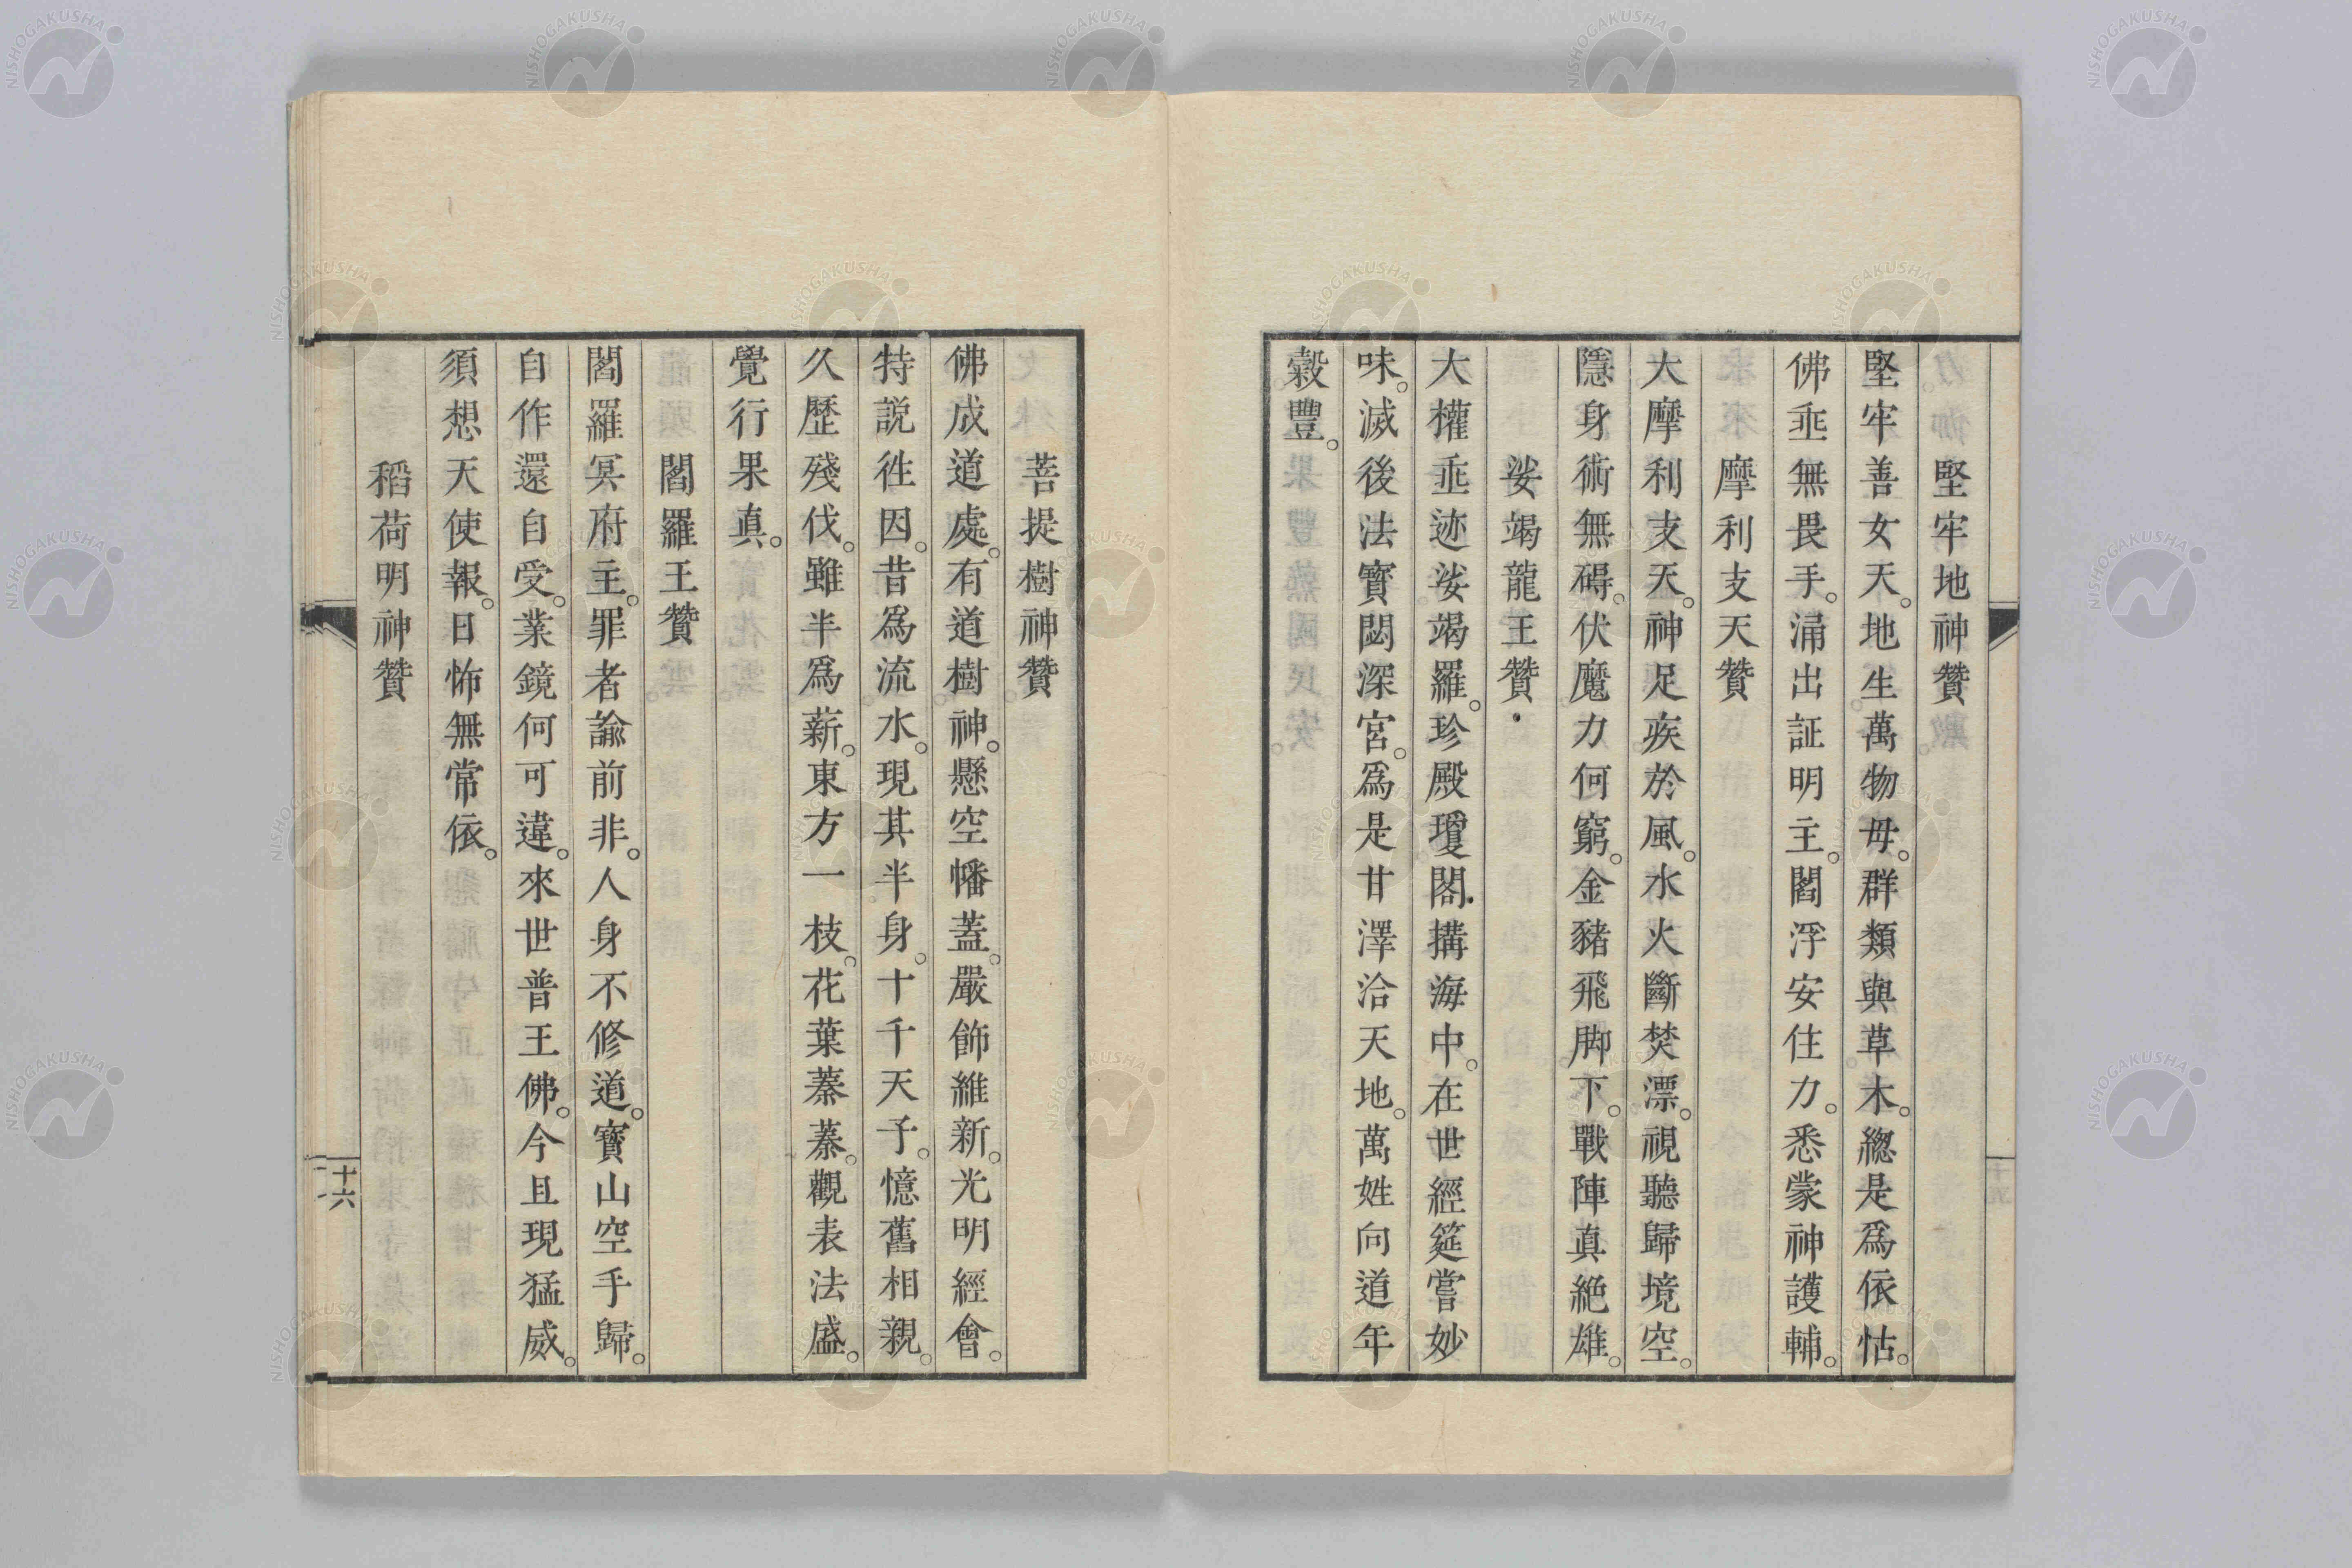 堅牢地神贊
堅牢善女天。地生萬物毋。群類與草木。總是爲依怙。
佛垂無畏手。涌出証明主。閻浮安住力。悉蒙神護輔。
摩利支天贊
大摩利支天。神足疾於風。水火斷焚漂。視聽歸境空。
隱身術無碍。伏魔力何窮。金豬飛脚下。戰陣真絶雄。
娑竭龍王贊
大權垂迹娑竭羅。珍殿瓊閣搆海中。在世經筵嘗妙
味。滅後法寶閟深宮。爲是甘澤洽天地。萬姓向道年
穀豐。
菩提樹神贊
佛成道處。有道樹神。懸空幡蓋。嚴飾維新。光明經會。
特説徃因。昔爲流水。現其半身。十千天子。憶舊相親。
久歷殘伐。雖半爲薪。東方一枝。花葉蓁蓁。觀表法盛。
覺行果真。
閻羅王贊
閻羅冥府主。罪者諭前非。人身不修道。寶山空手歸。
自作還自受。業鏡何可違。來世普王佛。今且現猛威。
須想天使報。日怖無常依。
稻荷明神贊
十六
NISHOGAKUSHA